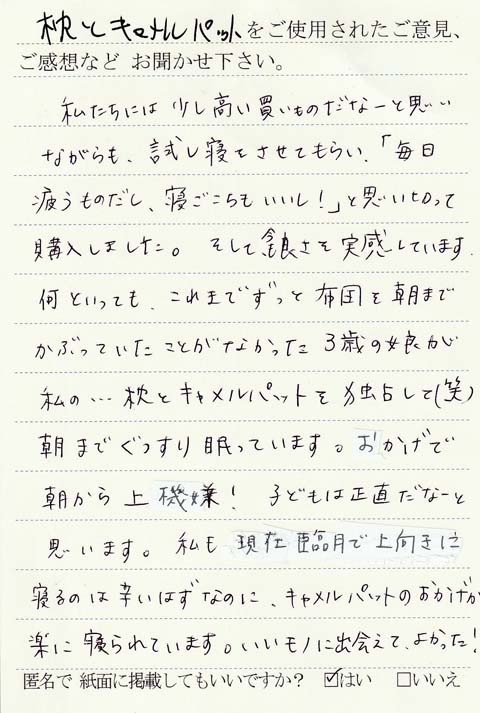 枕とキャメルパットをご使用されたご意見、
ご感想など お聞かせ下さい。
私たちには少し高い買いものだなーと思い
ながらも、試し寝をさせてもらい、「毎日
使うものだし、寝ごこちもいいし!」と思い切って
購入しました。 そして良さを実感しています。
何といっても、これまでずっと布団を朝まで
かぶっていたことがなかった3歳の娘が
私の…枕とキャメルパットを独占して(笑)
朝までぐっすり眠っています。おかげで
朝から上機嫌! 子どもは正直だなーと
思います。 私も現在臨月で上向きに
寝るのは辛いはずなのに、キャメルパットのおかげか
楽に寝られています。いいモノに出会えて、よかった!
匿名で 紙面に掲載してもいいですか? ☑はい □いいえ